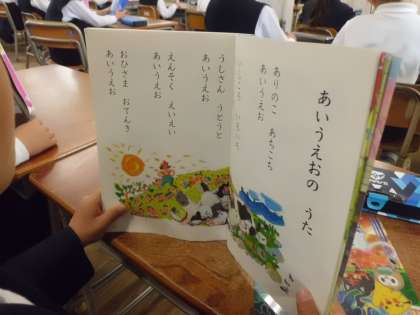 あいうえおの　うた
ありのこ　あちこち
あいうえお
うしさん　うとうと
あいうえお
えんそく　えいえい
あいうえお
おひさま　おてんき
あいうえお